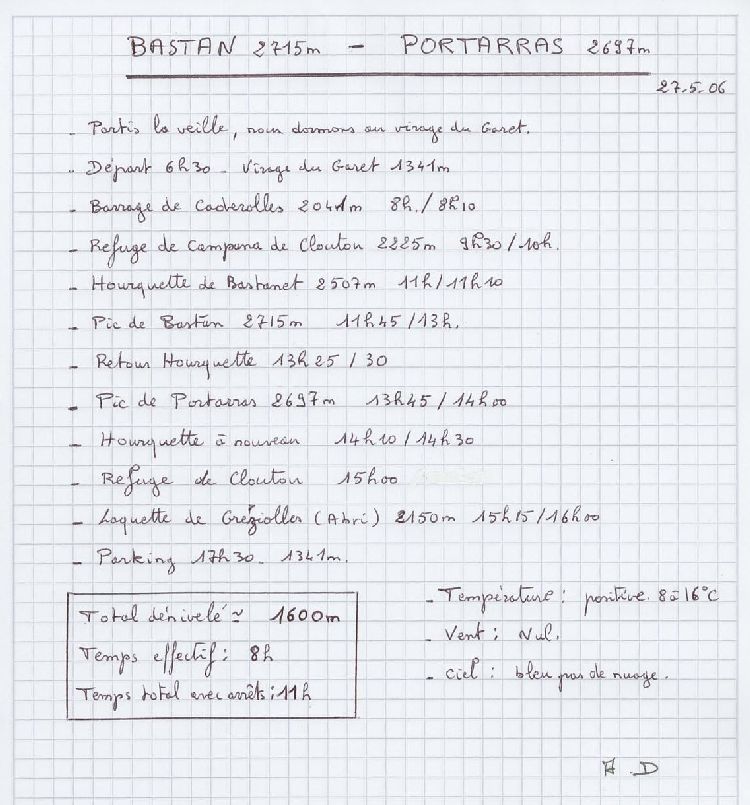 BASTAN 2715m - PORTARRAS 2697m
27.5.06
- Partis la veille, nous dormons au virage du Garet.
- Départ 6h30 - Virage du Garet 1341m
- Barrage de Caderolles 2041m 8h./8h10
- Refuge de Campana de Clouton 2225m 9h30/10h.
- Hourquette de Bastanet 2507m 11h/11h10
- Pic de Bastan 2715m 11h45/13h.
- Retour Hourquette 13h25/30
- Pic de Portarras 2697m 13h45/14h00
- Hourquette à nouveau 14h10/14h30
- Refuge de Clouton 15h00
- Laquette de Gréziolles (Abri) 2150m 15h15/16h00
- Parking 17h30 - 1341m.
Total dénivelé ≃ 1600m
Temps effectif : 8h
Temps total avec arrêts : 11h
- Température : positive 8 à 16°C
- Vent : Nul.
- Ciel : bleu pas de nuage.
A.D